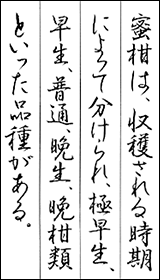 蜜柑は、収穫される時期
によって分けられ、極早生、
早生、普通、晩生、晩柑類
といった品種がある。